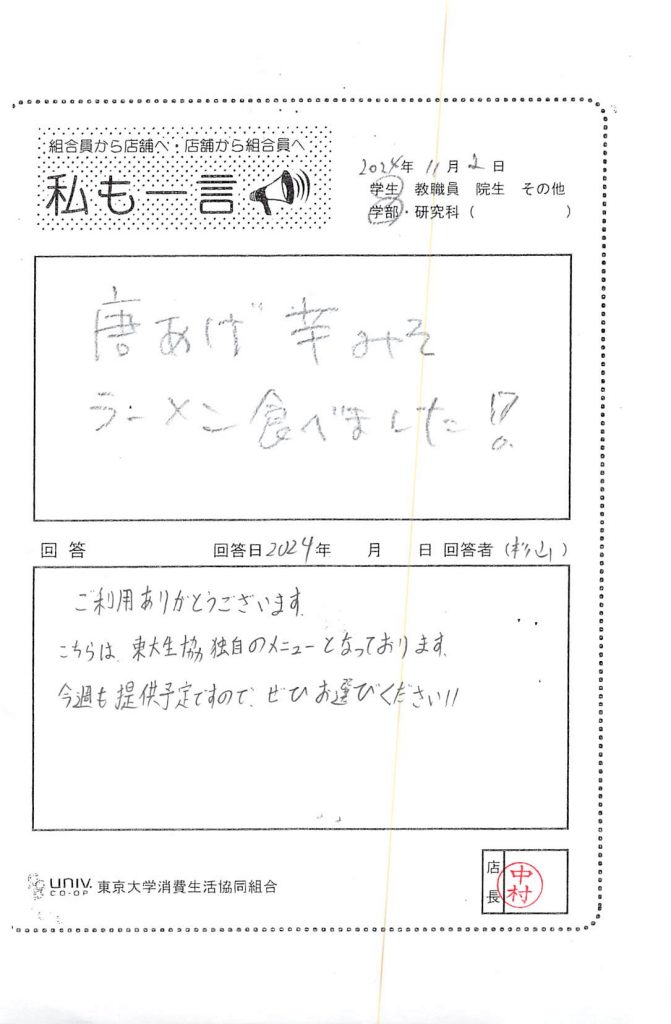 組合員から店舗へ・店舗から組合員へ
私も一言
2024年 11月 2日
学生 教職員 院生 その他
学部・研究科 ( )
唐あげ 辛みそ
ラーメン食べました!?
回答 回答日2024年 月 日 回答者(杉山)
ご利用ありがとうございます。
こちらは、東大生協独自のメニューとなっております。
今週も提供予定ですので、ぜひお選びください!!
UNIV. CO-OP 東京大学消費生活協同組合
店長 中村